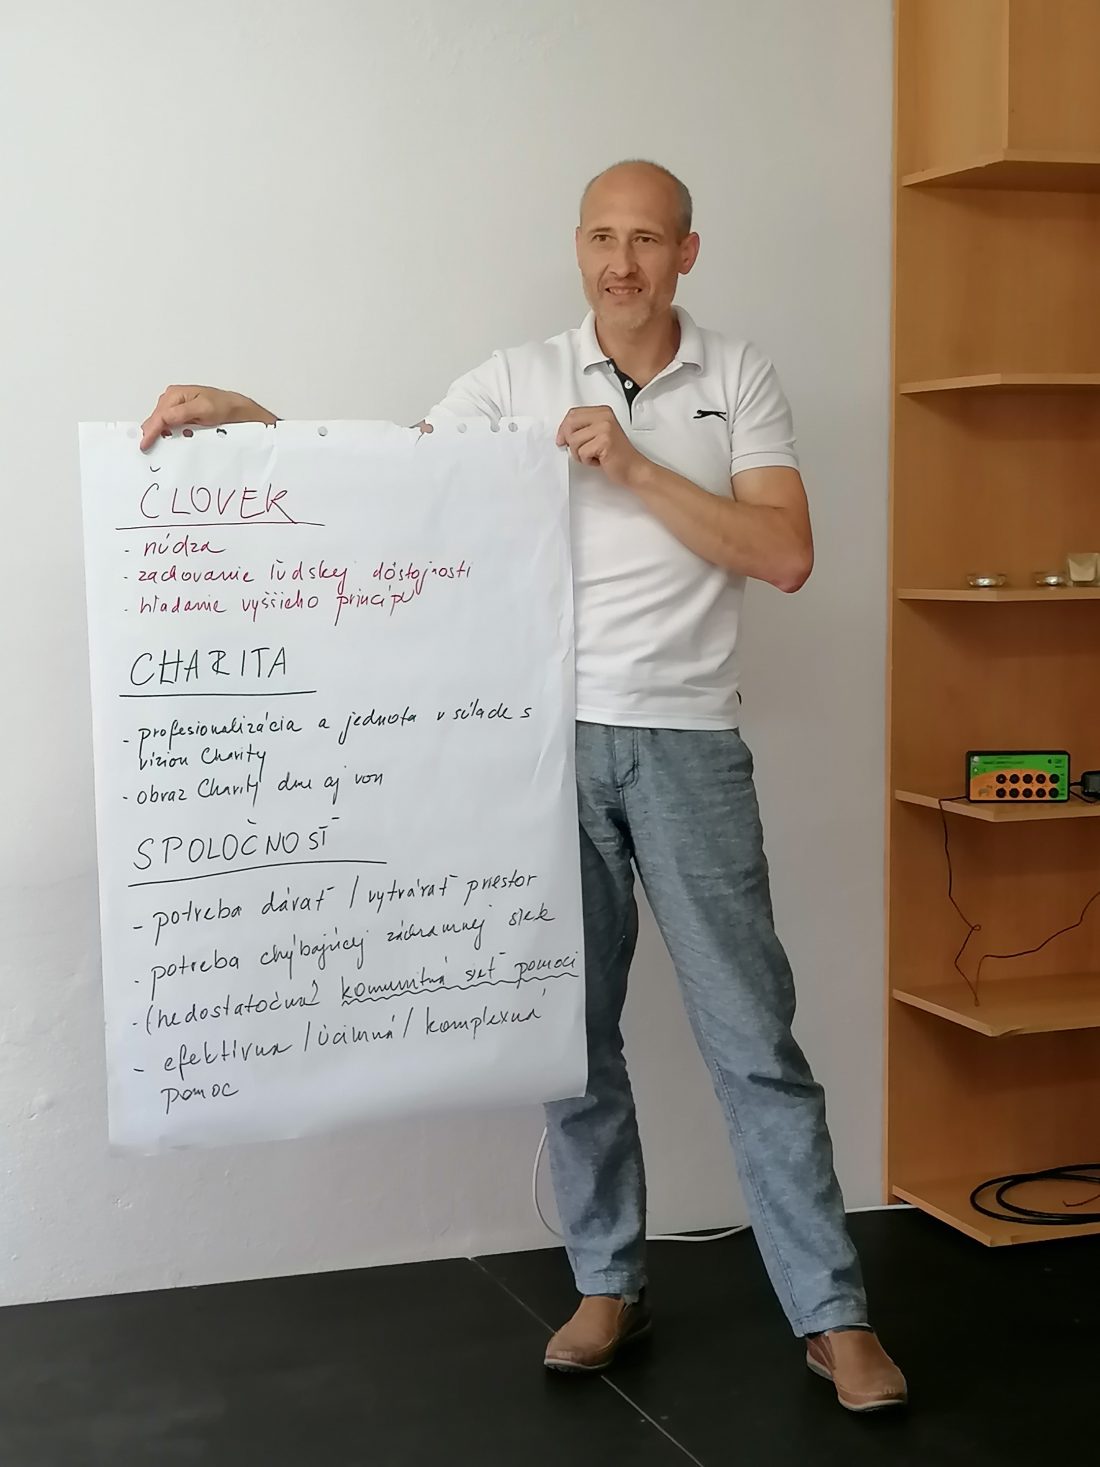 ČLOVEK
- núdza
- zachovanie ľudskej dôstojnosti
- hľadanie vyššieho princípu
CHARITA
- profesionalizácia a jednota v súlade s
víziou Charity
- obraz Charity dnu aj von
SPOLOČNOSŤ
- potreba dávať / vytvárať priestor
- potreba chýbajúcej záchrannej siete
- (nedostatočná) komunitná sieť pomoci
- efektívna / účinná / komplexná
pomoc